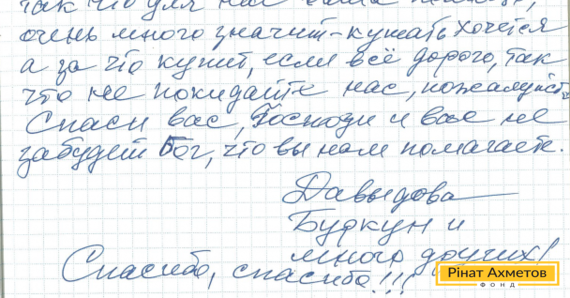 так что для нас ваша
очень много значит - кушать хочется
а за что купит, если всё дорого, так
что не покидайте нас, пожалуйста
Спаси вас, Господи и вас не
забудет Бог, что вы нам помогаете.
Давыдова
Буркун и
много других!
Спасибо, спасибо!!!
Рінат Ахметов
ФОНД